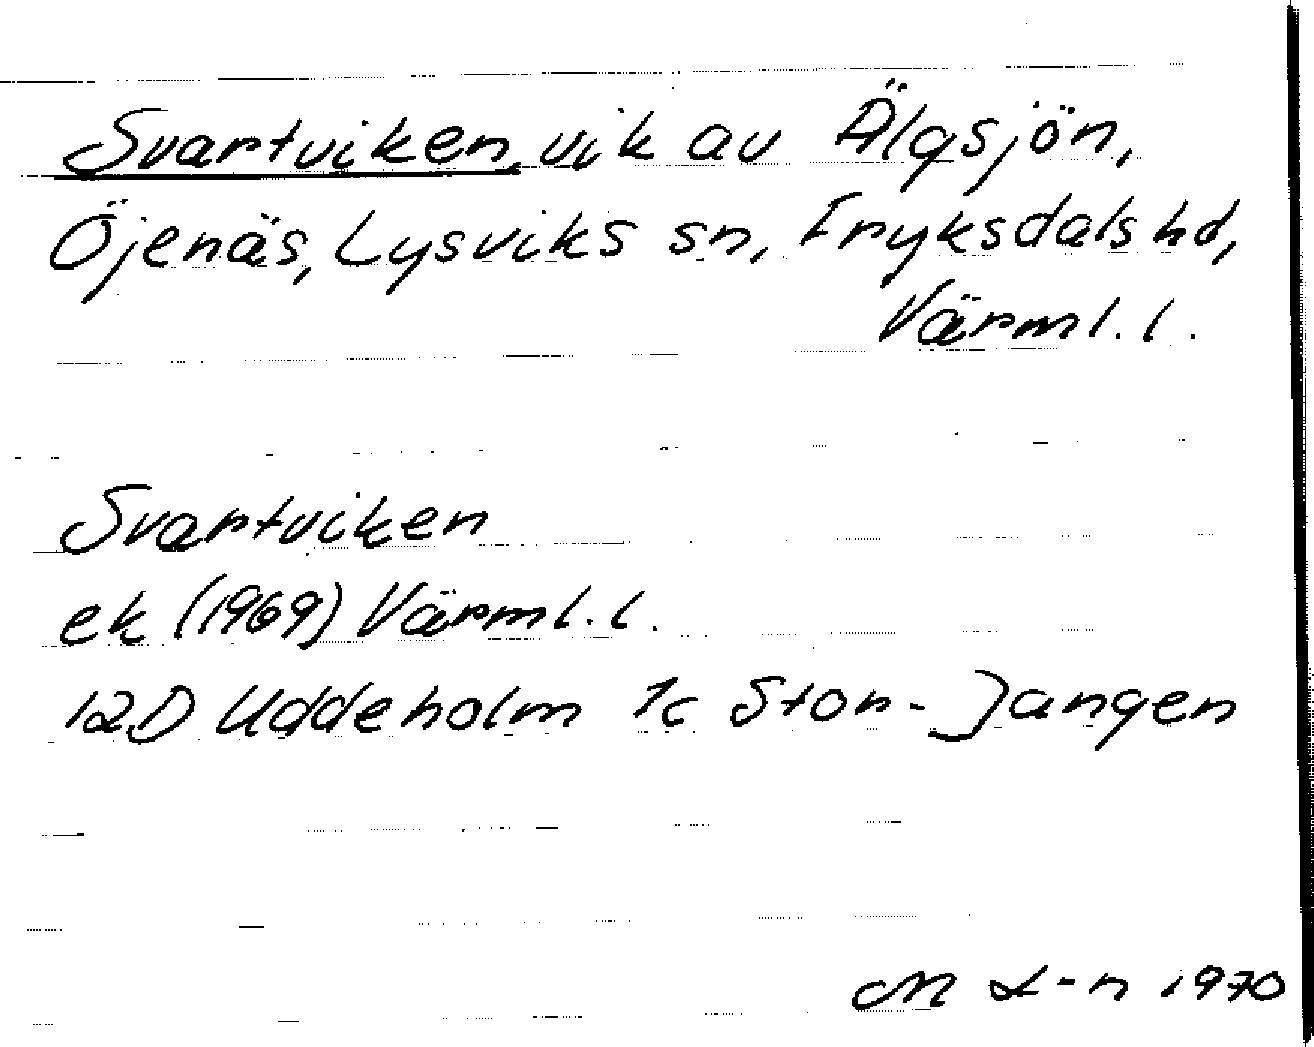 Svartviken, vik av Älgsjön,
Öjenäs, Lysviks sn, Fryksdals hd,
Värml. l.
Svartviken
ek (1969) Värml. l.
12D Uddeholm 1c Stor-Jangen
M L-n 1970